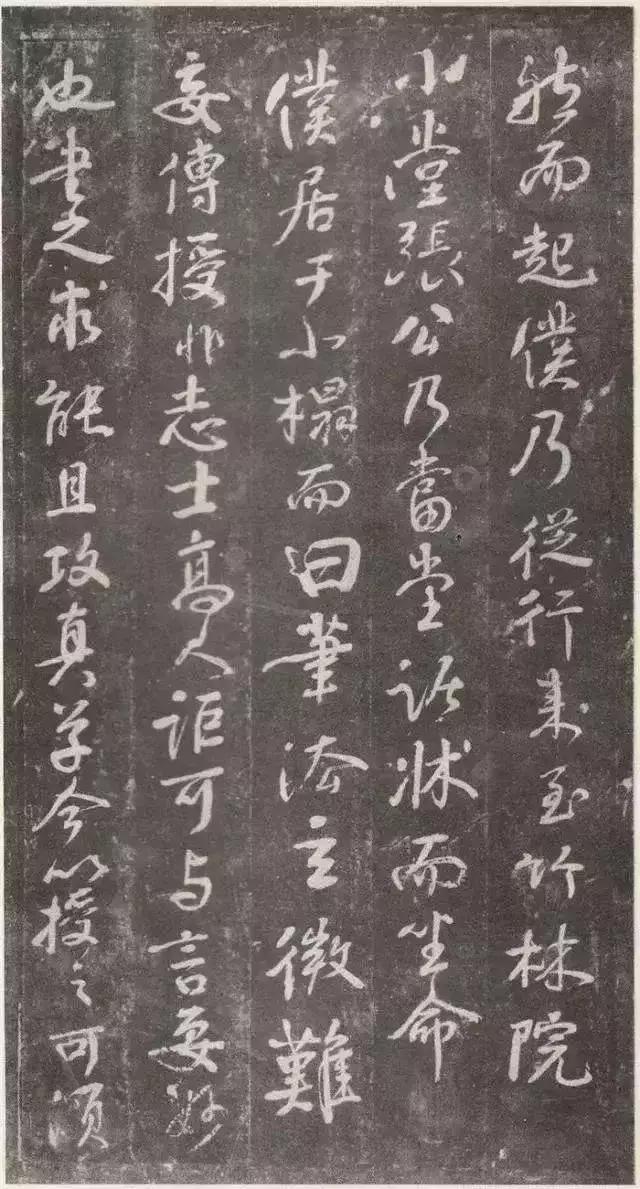 然而起僕乃從行來至竹林院
小堂張公乃當堂踞牀而坐命
僕居于小榻而曰筆法玄微難
妄傳授非志士高人詎可与言要妙
也書之求能且攻真草今以授之可須